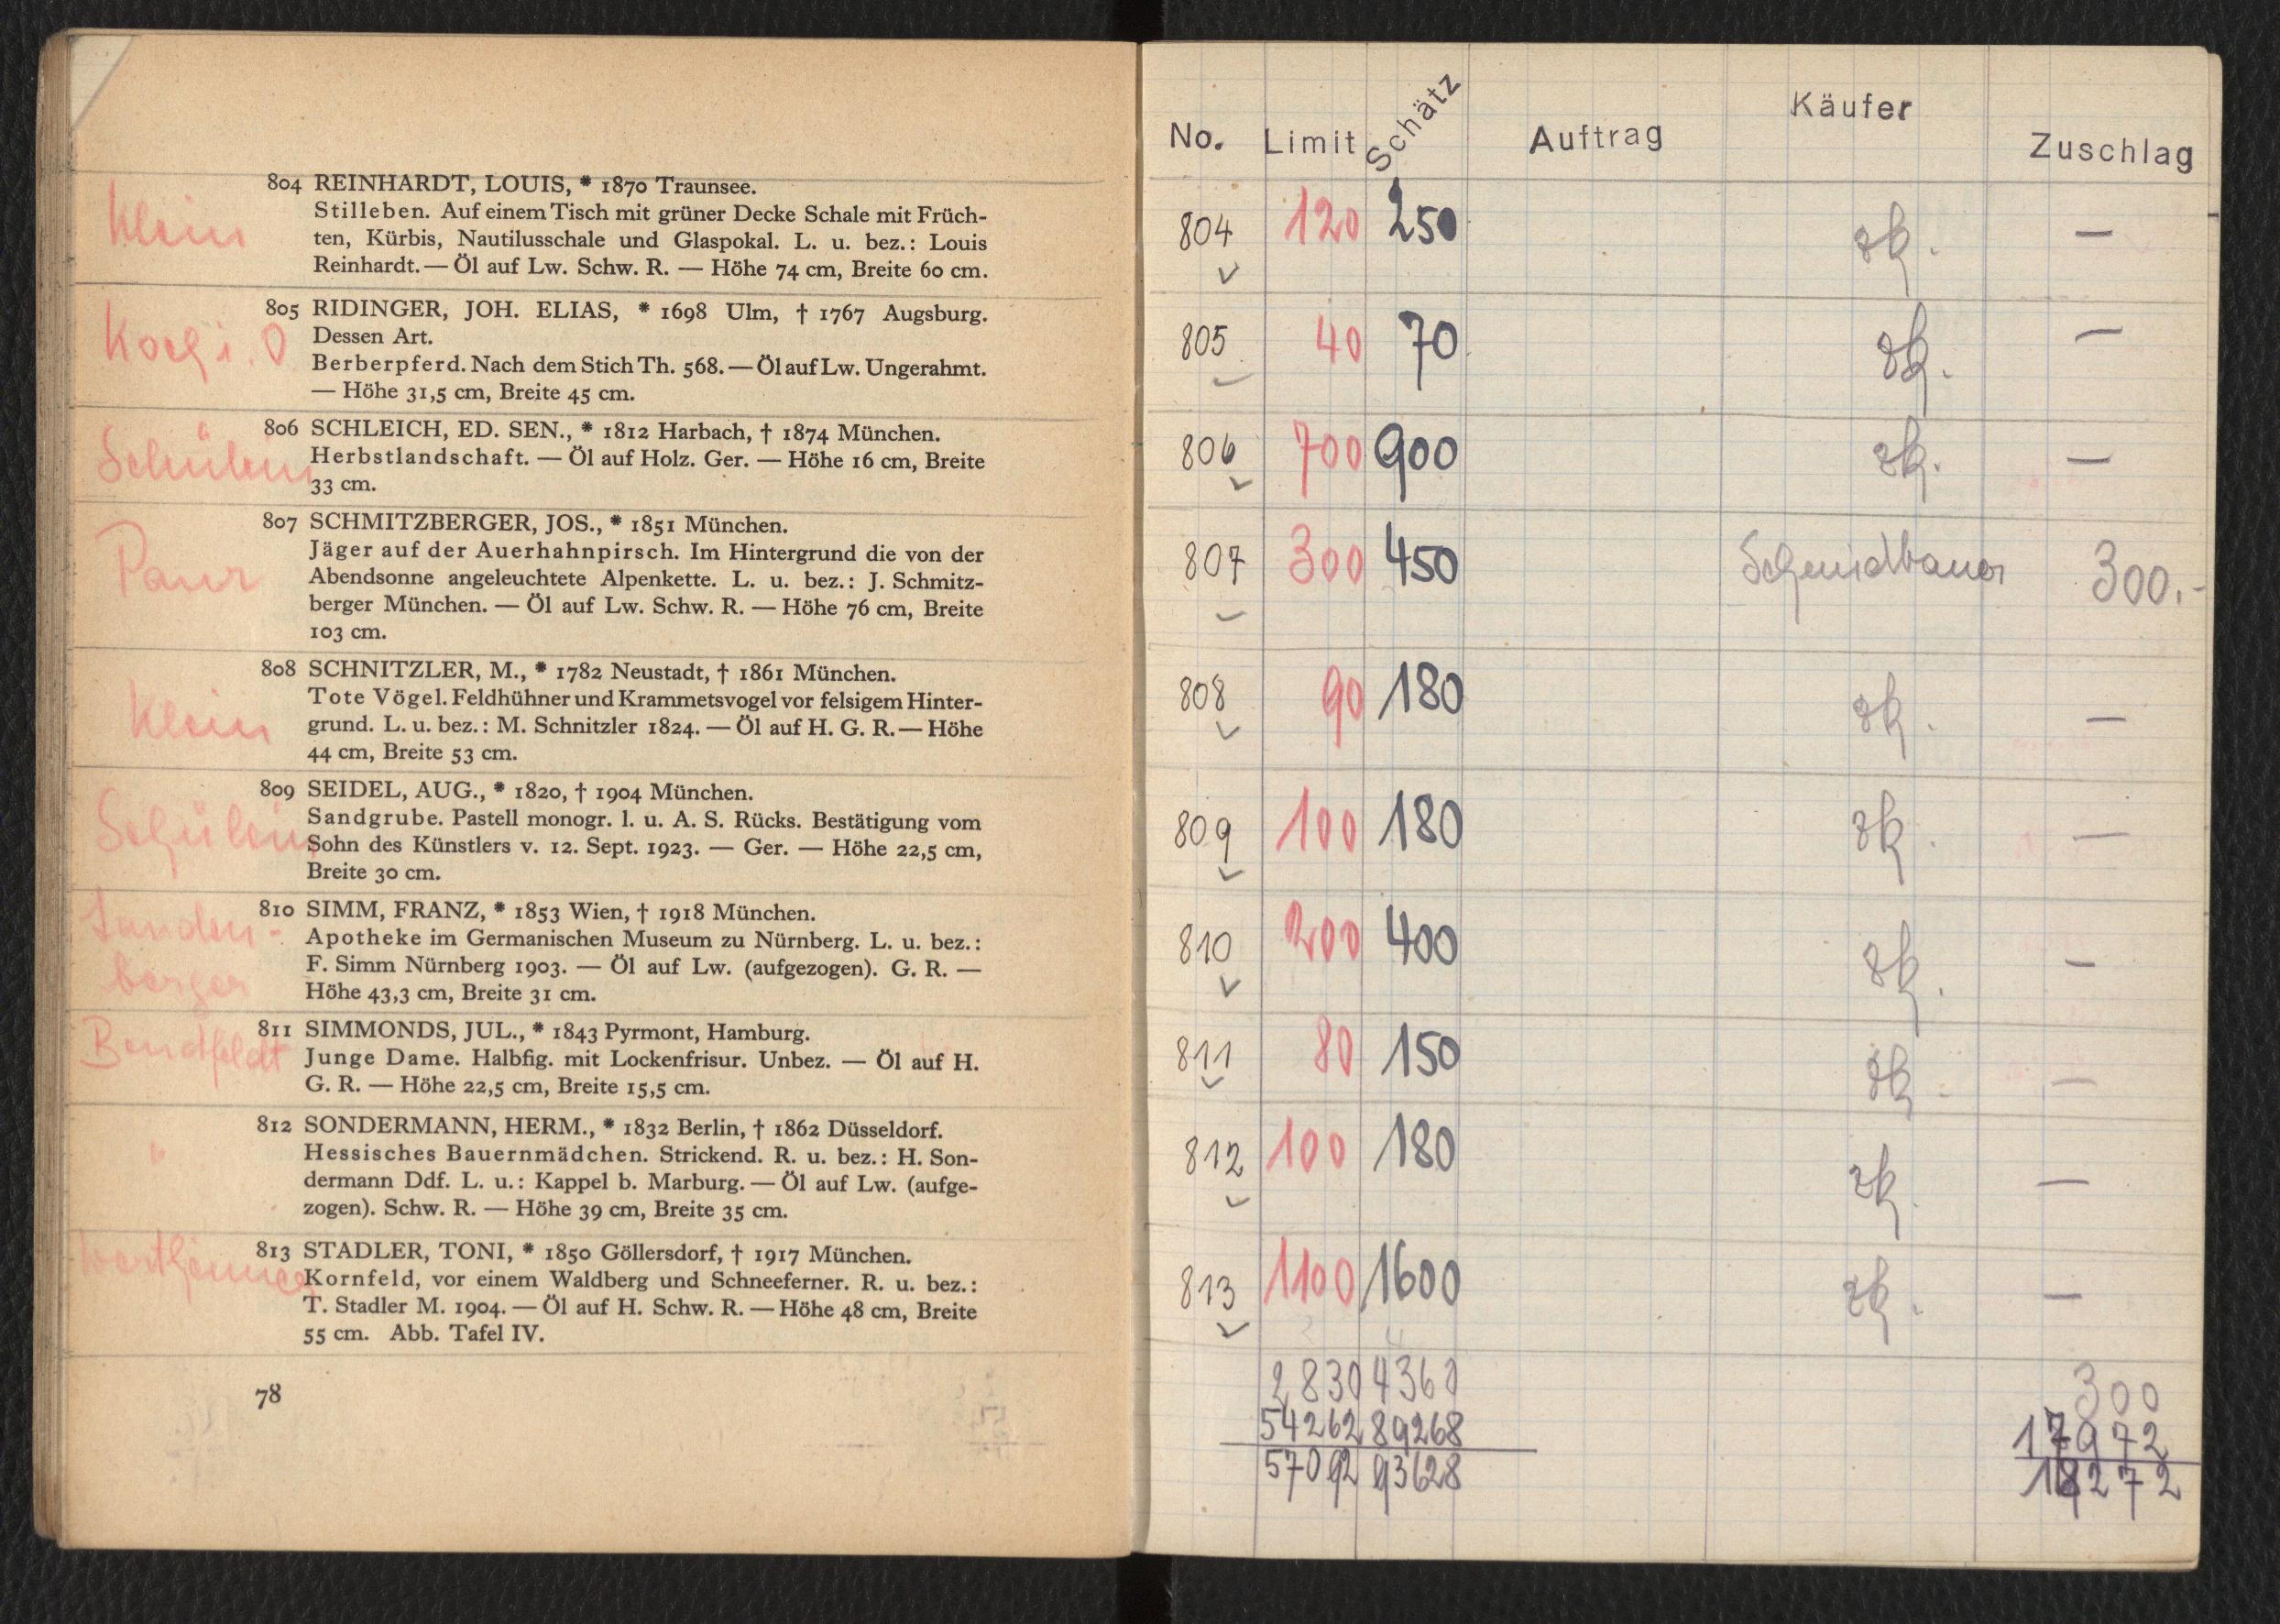 804 REINHARDT, LOUIS, * 1870 Traunsee.
Klein
Stilleben. Auf einem Tisch mit grüner Decke Schale mit Früch-
ten, Kürbis, Nautilusschale und Glaspokal. L. u. bez.: Louis
Reinhardt. — Öl auf Lw. Schw. R. — Höhe 74 cm, Breite 60 cm.
805 RIDINGER, JOH. ELIAS, * 1698 Ulm, † 1767 Augsburg.
Dessen Art.
Berberpferd. Nach dem Stich Th. 568. — Öl auf Lw. Ungerahmt.
— Höhe 31,5 cm, Breite 45 cm.
806 SCHLEICH, ED. SEN., * 1812 Harbach, † 1874 München.
Schülein
Herbstlandschaft. — Öl auf Holz. Ger. — Höhe 16 cm, Breite
33 cm.
807 SCHMITZBERGER, JOS., * 1851 München.
Jäger auf der Auerhahnpirsch. Im Hintergrund die von der
Paur
Abendsonne angeleuchtete Alpenkette. L. u. bez.: J. Schmitz-
berger München. — Öl auf Lw. Schw. R. — Höhe 76 cm, Breite
103 cm.
808 SCHNITZLER, M., * 1782 Neustadt, † 1861 München.
Tote Vögel. Feldhühner und Krammetsvogel vor felsigem Hinter-
Klein
grund. L. u. bez.: M. Schnitzler 1824. — Öl auf H. G. R. — Höhe
44 cm, Breite 53 cm.
809 SEIDEL, AUG., * 1820, † 1904 München.
Sandgrube. Pastell monogr. l. u. A. S. Rücks. Bestätigung vom
Schülein
Sohn des Künstlers v. 12. Sept. 1923. — Ger. — Höhe 22,5 cm,
Breite 30 cm.
810 SIMM, FRANZ, * 1853 Wien, † 1918 München.
Apotheke im Germanischen Museum zu Nürnberg. L. u. bez.:
F. Simm Nürnberg 1903. — Öl auf Lw. (aufgezogen). G. R. —
berger
Höhe 43,3 cm, Breite 31 cm.
811 SIMMONDS, JUL., * 1843 Pyrmont, Hamburg.
Bendfeldt
Junge Dame. Halbfig. mit Lockenfrisur. Unbez. — Öl auf H.
G. R. — Höhe 22,5 cm, Breite 15,5 cm.
812 SONDERMANN, HERM., * 1832 Berlin, † 1862 Düsseldorf.
"
Hessisches Bauernmädchen. Strickend. R. u. bez.: H. Son-
dermann Ddf. L. u.: Kappel b. Marburg. — Öl auf Lw. (aufge-
zogen). Schw. R. — Höhe 39 cm, Breite 35 cm.
813 STADLER, TONI, * 1850 Göllersdorf, † 1917 München.
Kornfeld, vor einem Waldberg und Schneeferner. R. u. bez.:
T. Stadler M. 1904. — Öl auf H. Schw. R. — Höhe 48 cm, Breite
55 cm. Abb. Tafel IV.
78
No. Limit Schätz Auftrag Käufer Zuschlag
804 120 250 zk. —
805 40 70 zk. —
806 700 900 zk. —
807 300 450 Schmidbauer 300.-
808 90 180 zk. —
809 100 180 zk. —
810 200 400 zk. —
811 80 150 zk. —
812 100 180 zk. —
813 1100 1600 zk. —
2830 4360 300
54262 89268 17972
57092 93628 18272